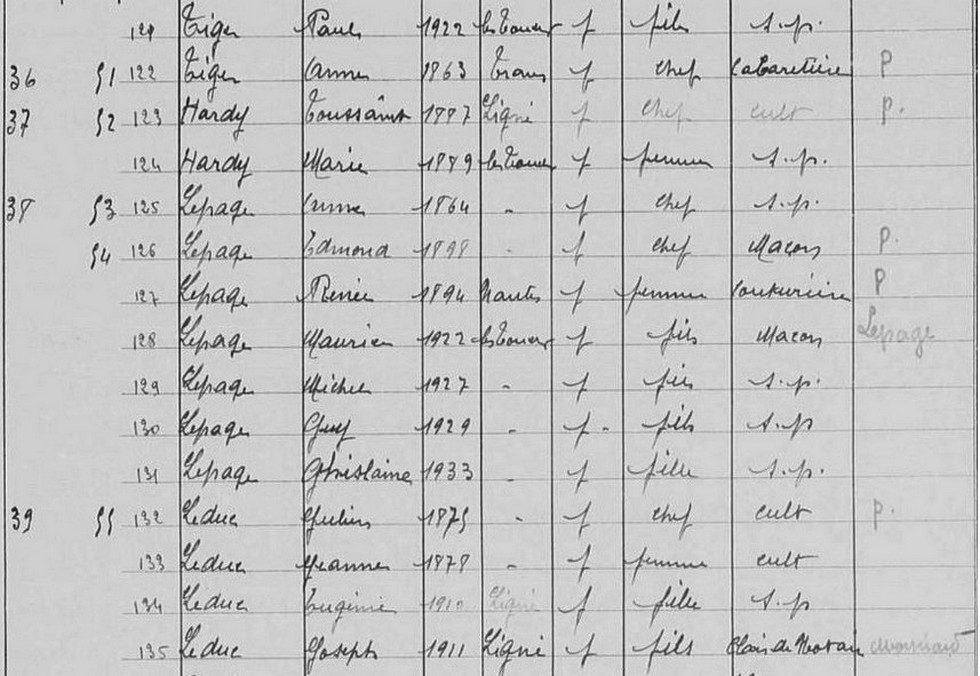 121 Tiger Paul 1922 les Touches f fils s.p.
36 51 122 Tiger Anne 1863 Trans f chef Cabaretière P
37 52 123 Hardy Toussaint 1887 Ligné f chef cult P.
124 Hardy Marie 1889 les Touches f femme s.p.
38 53 125 Lepage Anne 1864 - f chef s.p.
54 126 Lepage Edmond 1898 - f chef Maçon P.
127 Lepage Renée 1894 Nantes f femme Couturière P
128 Lepage Maurice 1922 les Touches f fils Maçon Lepage
129 Lepage Michel 1927 - f fils s.p.
130 Lepage Guy 1929 - f - fils s.p
131 Lepage Ghislaine 1933 - f fille s.p.
39 55 132 Leduc Julien 1875 - f chef cult P.
133 Leduc Jeanne 1878 - f femme cult
134 Leduc Eugénie 1910 Ligné f fille s.p
135 Leduc Joseph 1911 Ligné f fils Clerc de Notaire